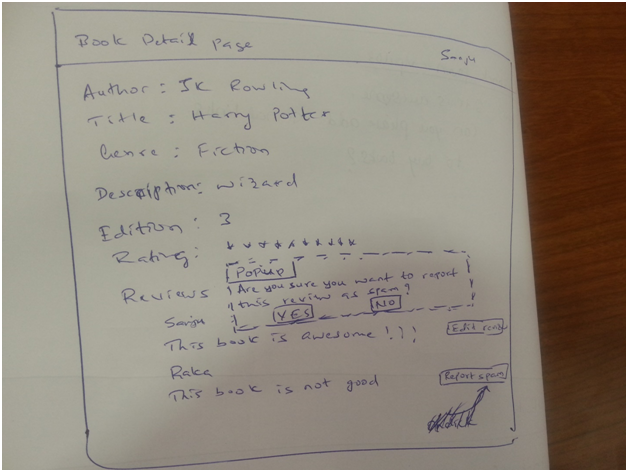 Book Detail Page Sanju
Author : JK Rowling
Title : Harry Potter
Genre : Fiction
Description: wizard
Edition : 3
Rating: * * * * * * * * * *
Popup
Are you sure you want to report
this review as spam?
YES NO
Reviews
Sanju
This book is awesome !!! Edit
Raka
This book is not good Report spam